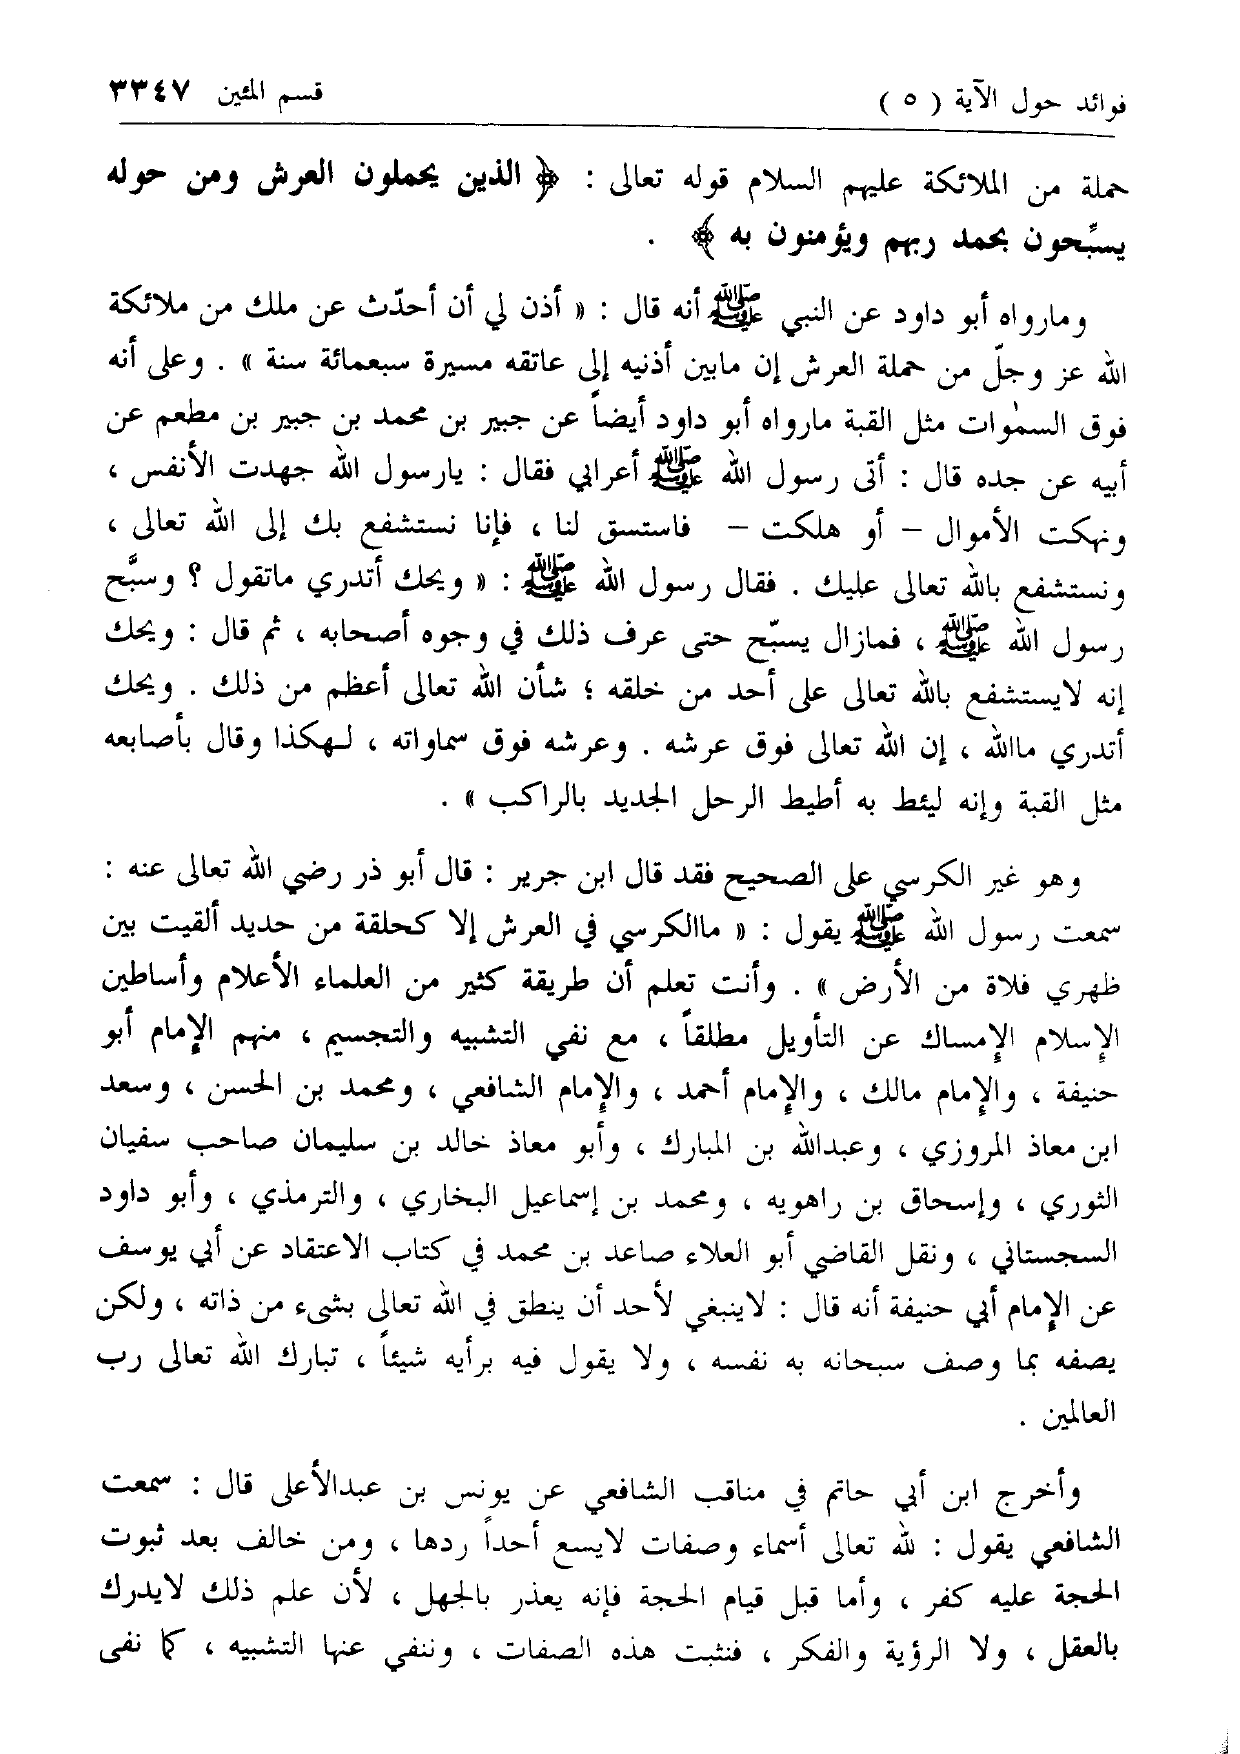 فوائد حول الآية ( ٥ ) قسم المئين ٣٣٤٧
حملة من الملائكة عليهم السلام قوله تعالى : ﴿ الذين يحملون العرش ومن حوله
يسبِّحون بحمد ربهم ويؤمنون به ﴾ .
ومارواه أبو داود عن النبي ﷺ أنه قال : « أذن لي أن أحدّث عن ملك من ملائكة
الله عز وجلّ من حملة العرش إن مابين أذنيه إلى عاتقه مسيرة سبعمائة سنة » . وعلى أنه
فوق السمٰوات مثل القبة مارواه أبو داود أيضاً عن جبير بن محمد بن جبير بن مطعم عن
أبيه عن جده قال : أتى رسول الله ﷺ أعرابي فقال : يارسول الله جهدت الأنفس ،
ونهكت الأموال – أو هلكت – فاستسق لنا ، فإنا نستشفع بك إلى الله تعالى ،
ونستشفع بالله تعالى عليك . فقال رسول الله ﷺ : « ويحك أتدري ماتقول ؟ وسبَّح
رسول الله ﷺ ، فمازال يسبّح حتى عرف ذلك في وجوه أصحابه ، ثم قال : ويحك
إنه لايستشفع بالله تعالى على أحد من خلقه ؛ شأن الله تعالى أعظم من ذلك . ويحك
أتدري ماالله ، إن الله تعالى فوق عرشه . وعرشه فوق سماواته ، لـهكذا وقال بأصابعه
مثل القبة وإنه ليئط به أطيط الرحل الجديد بالراكب » .
وهو غير الكرسي على الصحيح فقد قال ابن جرير : قال أبو ذر رضي الله تعالى عنه :
سمعت رسول الله ﷺ يقول : « ماالكرسي في العرش إلا كحلقة من حديد ألقيت بين
ظهري فلاة من الأرض » . وأنت تعلم أن طريقة كثير من العلماء الأعلام وأساطين
الإسلام الإمساك عن التأويل مطلقاً ، مع نفي التشبيه والتجسيم ، منهم الإمام أبو
حنيفة ، والإمام مالك ، والإمام أحمد ، والإمام الشافعي ، ومحمد بن الحسن ، وسعد
ابن معاذ المروزي ، وعبدالله بن المبارك ، وأبو معاذ خالد بن سليمان صاحب سفيان
الثوري ، وإسحاق بن راهويه ، ومحمد بن إسماعيل البخاري ، والترمذي ، وأبو داود
السجستاني ، ونقل القاضي أبو العلاء صاعد بن محمد في كتاب الاعتقاد عن أبي يوسف
عن الإمام أبي حنيفة أنه قال : لاينبغي لأحد أن ينطق في الله تعالى بشيء من ذاته ، ولكن
يصفه بما وصف سبحانه به نفسه ، ولا يقول فيه برأيه شيئاً ، تبارك الله تعالى رب
العالمين .
وأخرج ابن أبي حاتم في مناقب الشافعي عن يونس بن عبدالأعلى قال : سمعت
الشافعي يقول : لله تعالى أسماء وصفات لايسع أحداً ردها ، ومن خالف بعد ثبوت
الحجة عليه كفر ، وأما قبل قيام الحجة فإنه يعذر بالجهل ، لأن علم ذلك لايدرك
بالعقل ، ولا الرؤية والفكر ، فنثبت هذه الصفات ، وننفي عنها التشبيه ، كما نفى